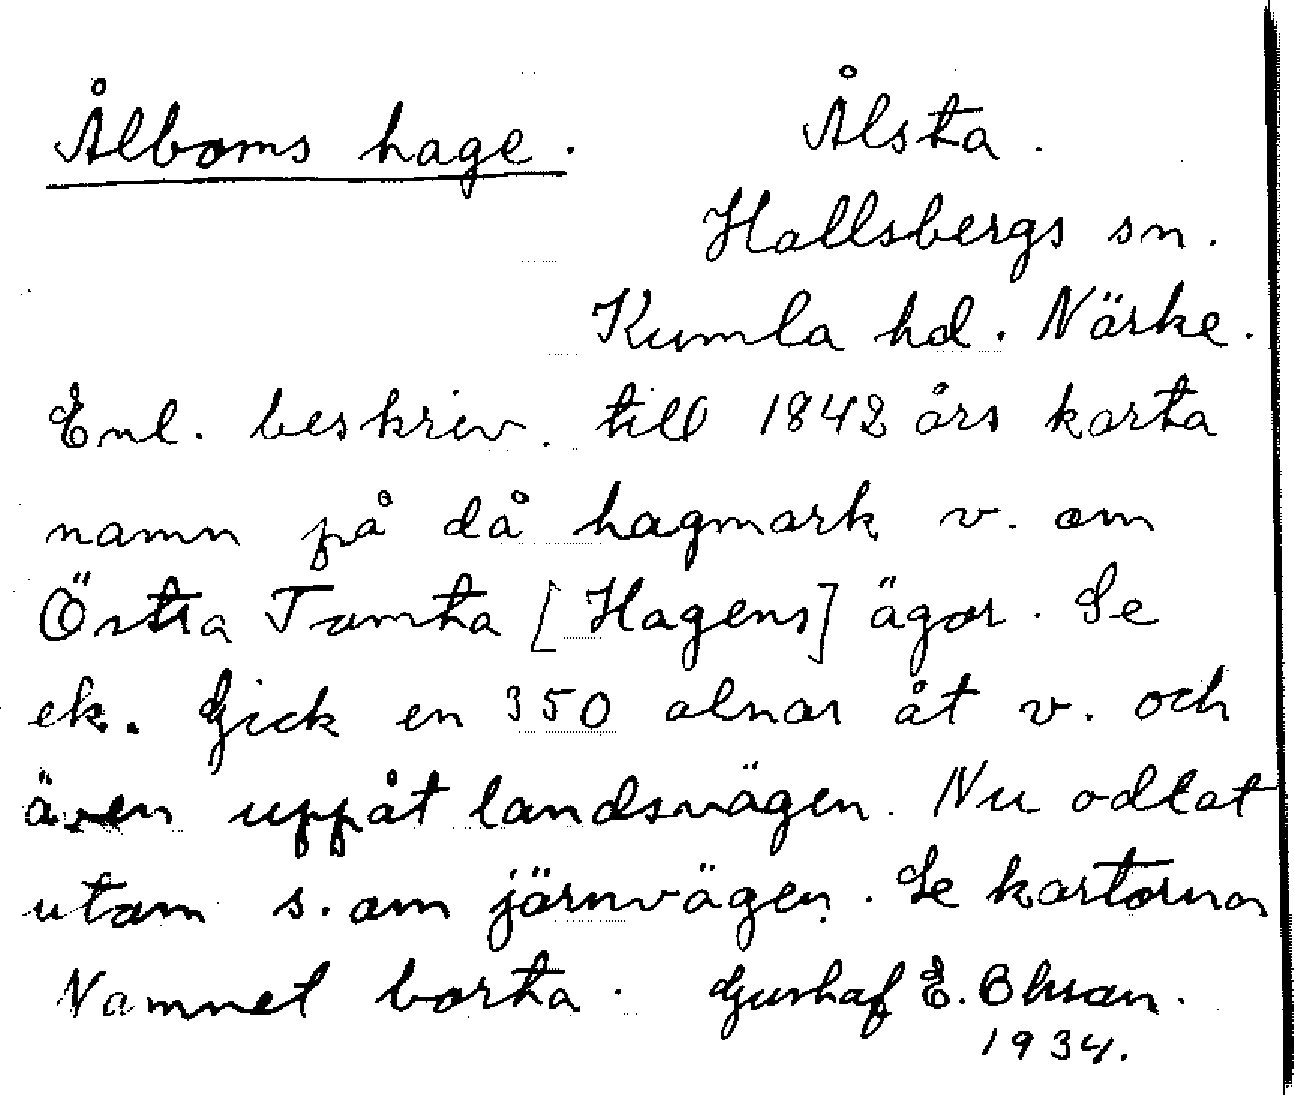 Ålboms hage. Ålsta.
Hallsbergs sn.
Kumla hd. Närke.
Enl. beskriv. till 1842 års karta
namn på då hagmark v. om
Östra Tomta [Hagens] ägor. Se
ek. Gick en 350 alnar åt v. och
även uppåt landsvägen. Nu odlat
utom s. om järnvägen. Se kartorna
Namnet borta. Gustaf E. Ohlson.
1934.